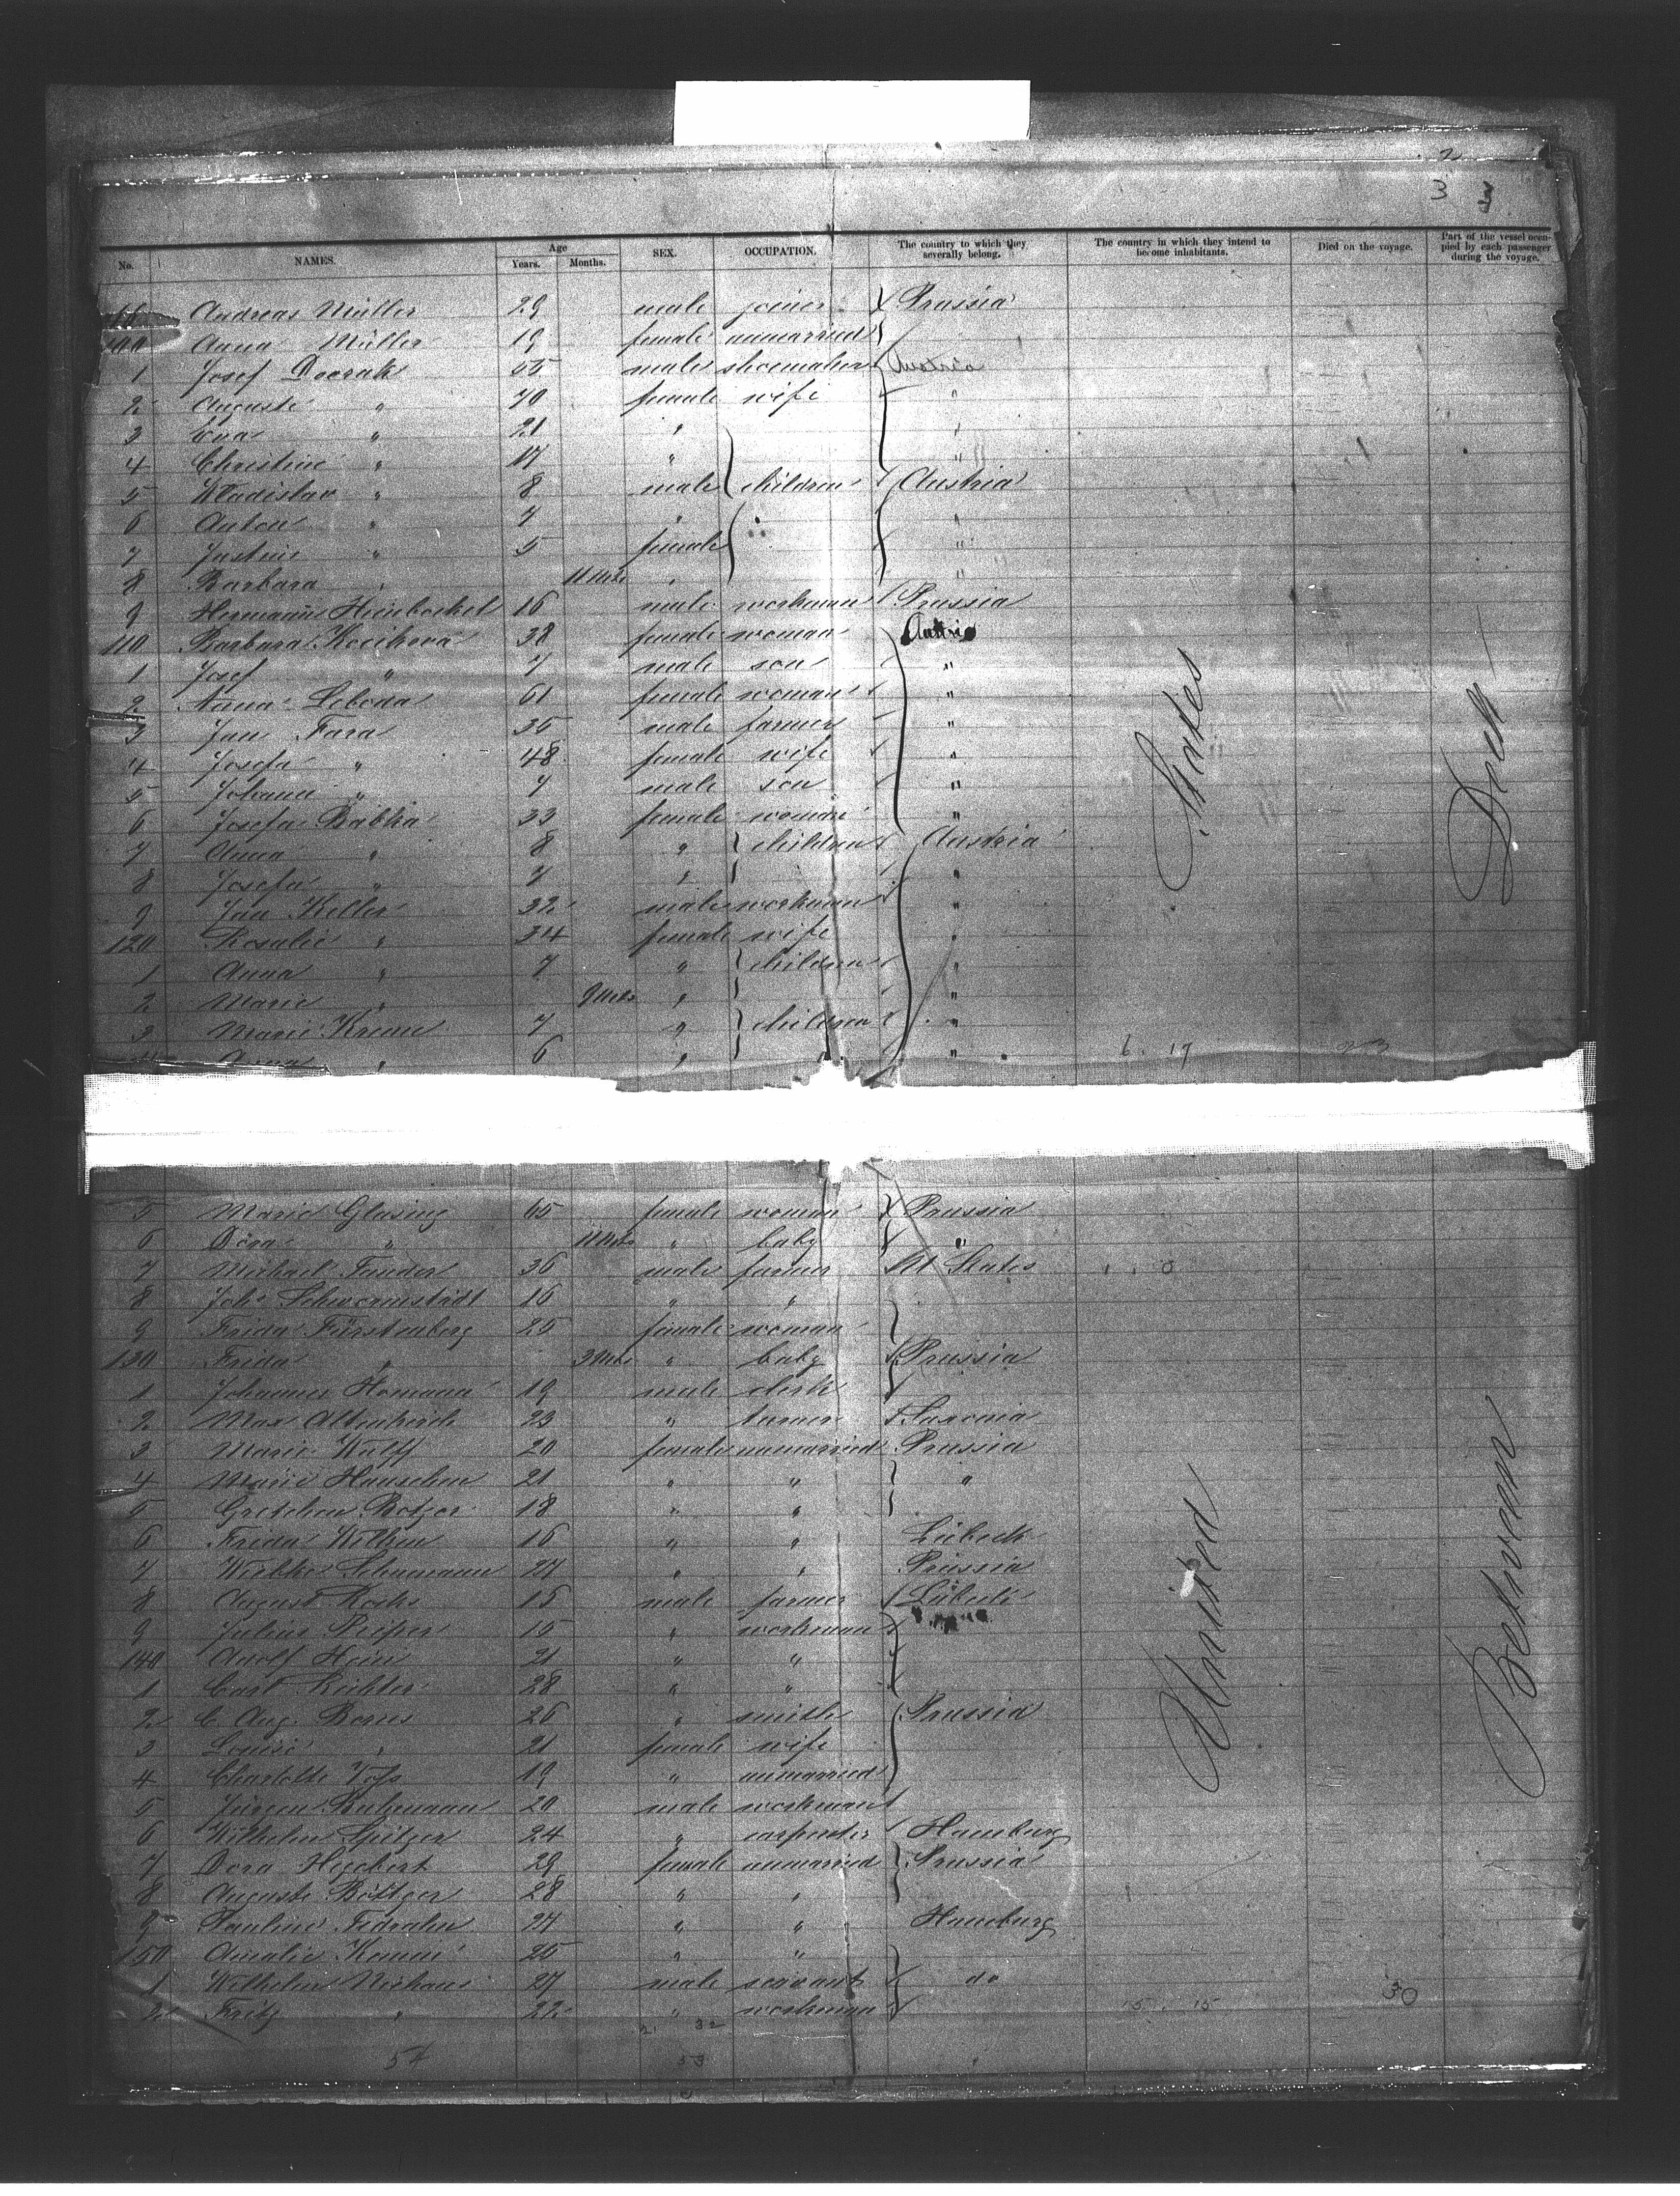 3 3
No. NAMES. Age Years. Months. SEX. OCCUPATION. The country to which they severally belong. The country in which they intend to become inhabitants. Died on the voyage. Part of the vessel occupied by each passenger during the voyage.
Andreas Müller 29 male joiner Prussia
100 Anna Müller 19 female unmarried
1 Josef Dvorak 55 male shoemaker Austria
2 Auguste " 40 female wife "
3 Eva " 21 " "
4 Christine " 17 " "
5 Wladislav " 8 male children Austria
6 Anton " 7 " "
7 Justine " 5 female "
8 Barbara " 11 Mts " "
9 Hermann Heinbockel 16 male workman Prussia
110 Barbara Kocikova 38 female woman Austria
1 Josef " 7 male son "
2 Anna Lebeda 61 female woman "
3 Jan Fara 35 male farmer "
4 Josefa " 48 female wife "
5 Johann " 7 male son "
6 Josefa Babka 33 female woman "
7 Anna " 8 " children Austria
8 Josefa " 7 " "
9 Jan Keller 32 male workman "
120 Rosalie " 34 female wife "
1 Anna " 7 " children "
2 Marie " 9 Mts " "
3 Marie Kreme 7 " children "
4 Anna " 6 " "
6. 17
5 Marie Glasing 65 female woman Prussia
6 Dora " 11 Mts " baby "
7 Michael Tander 36 male farmer U States
8 Joh. Schwormstädt 16 " "
9 Frida Fürstenberg 25 female woman
130 Frida " 3 Mts " baby Prussia
1 Johannes Homann 19 male clerk
2 Max Altenkirch 23 " turner Saxonia
3 Marie Wulff 20 female unmarried Prussia
4 Marie Hanschen 21 " " "
5 Gretchen Botzer 18 " "
6 Frida Wilken 16 " " Lübeck
7 Wiebke Schumann 27 " " Prussia
8 August Kochs 15 male farmer Lübeck
9 Julius Pieper 15 " workman
140 Adolf Hein 21 " "
1 Carl Richter 28 " "
2 C. Aug. Borns 26 " smith Prussia
3 Louise " 21 female wife
4 Charlotte Voss 19 " unmarried
5 Jürgen 20 male workman
6 Wilhelm Spitzer 24 " carpenter Hamburg
7 Dora Heuchert 29 female unmarried Prussia
8 Auguste Böttger 28 " "
9 Pauline Fedralin 24 " " Hamburg
150 Amalie Kamm 25 " "
1 Wilhelm Niehaus 27 male servant do
2 Fritz " 22 " workman
15. 15
30
32
54
53
United States
Between Deck